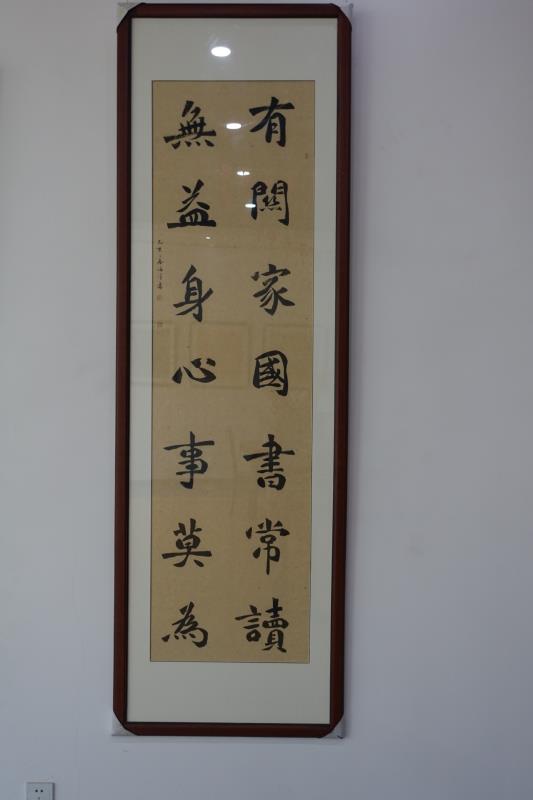 有關家國書常讀
無益身心事莫為